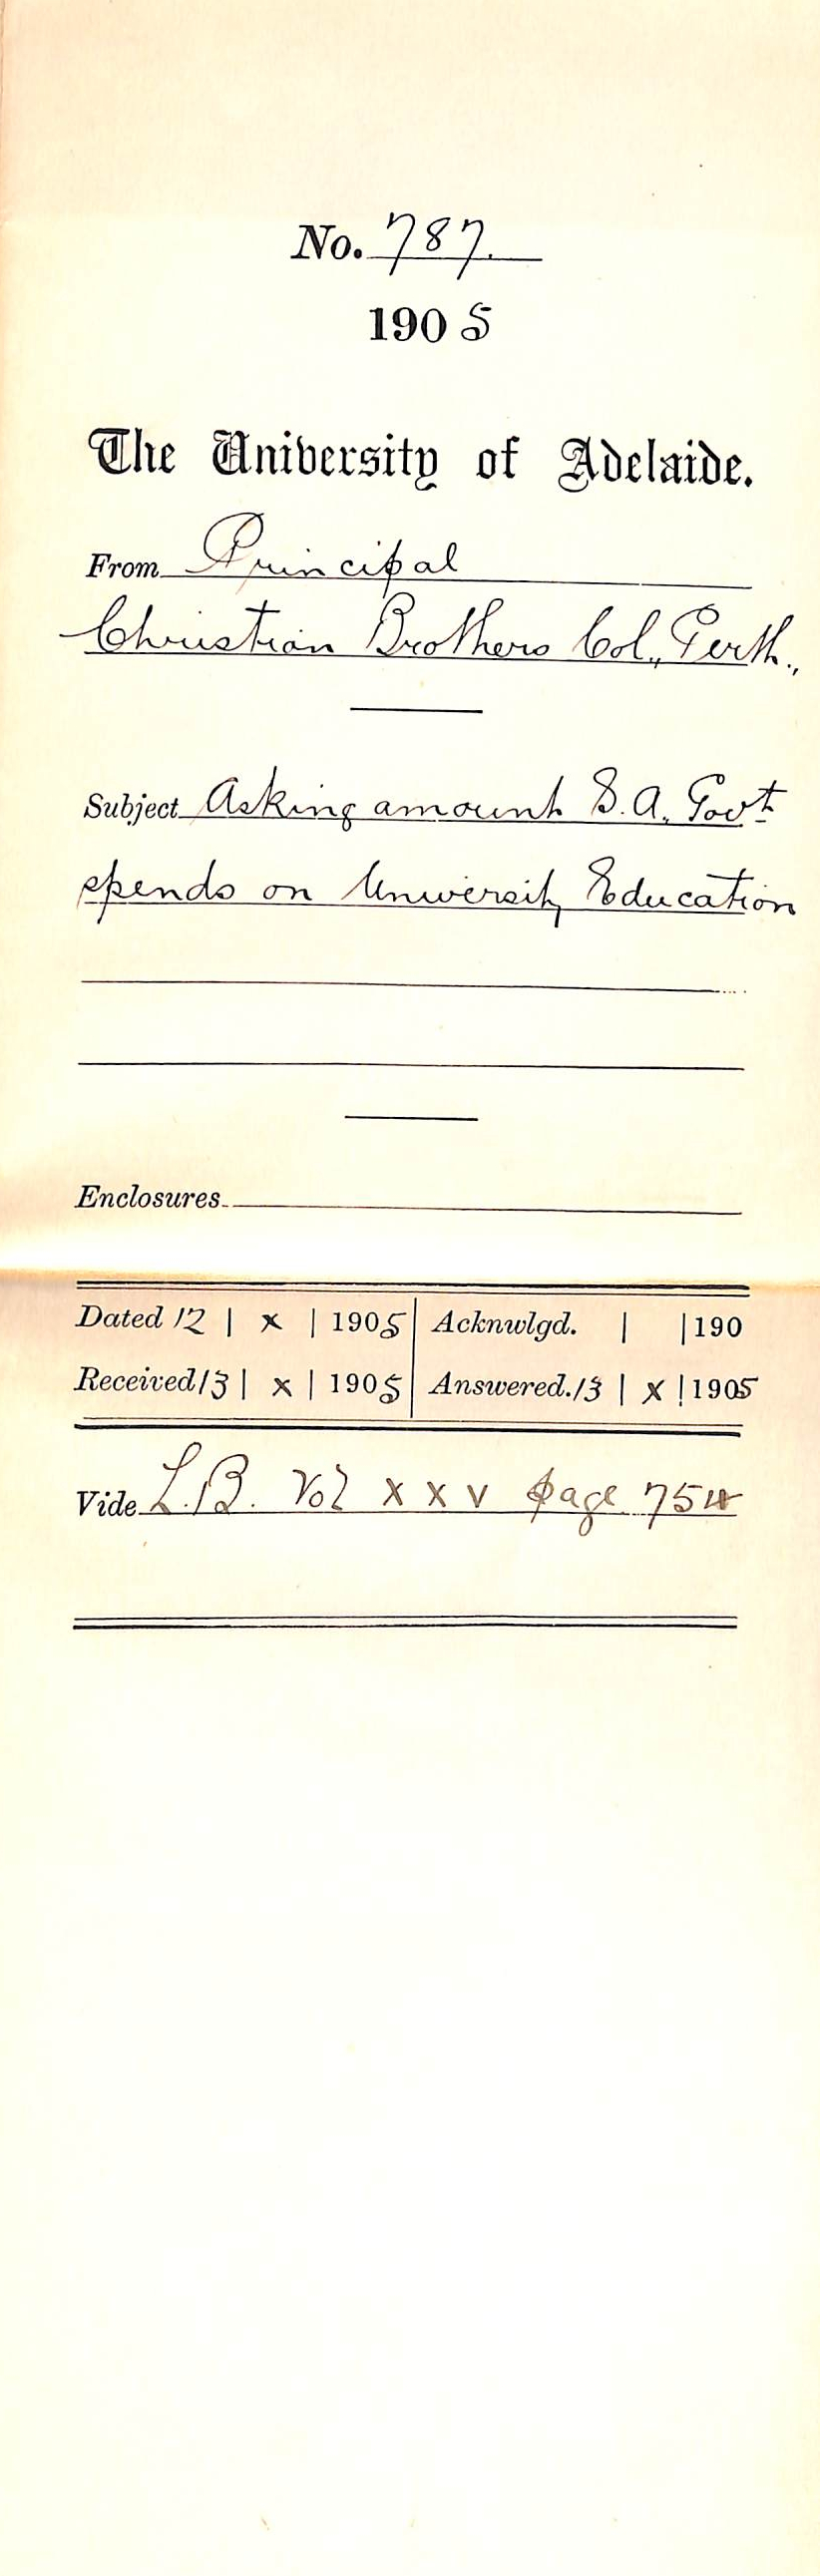 No. 787.
1905
The University of Adelaide.
From Principal
Christian Brothers Col., Perth.,
Subject Asking amount S.A. Govt
spends on University Education
Enclosures
Dated 12 | x | 1905 | Acknwlgd. | | 190
Received 13 | x | 1905 | Answered. 13 | x | 1905
Vide L.B. Vol XXV page 754